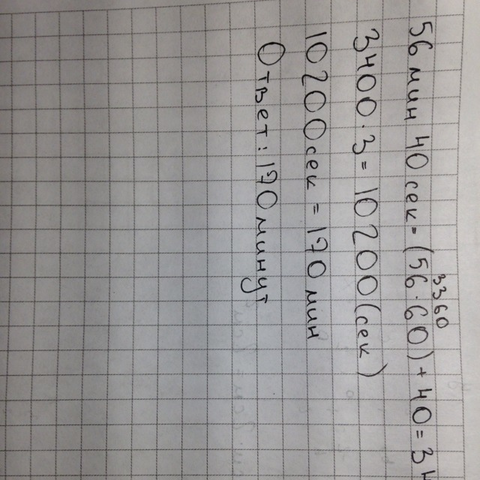 3360
56 мин 40 сек = (56·60) + 40 = 34
3400·3 = 10200 (сек)
10200 сек = 170 мин
Ответ: 170 минут